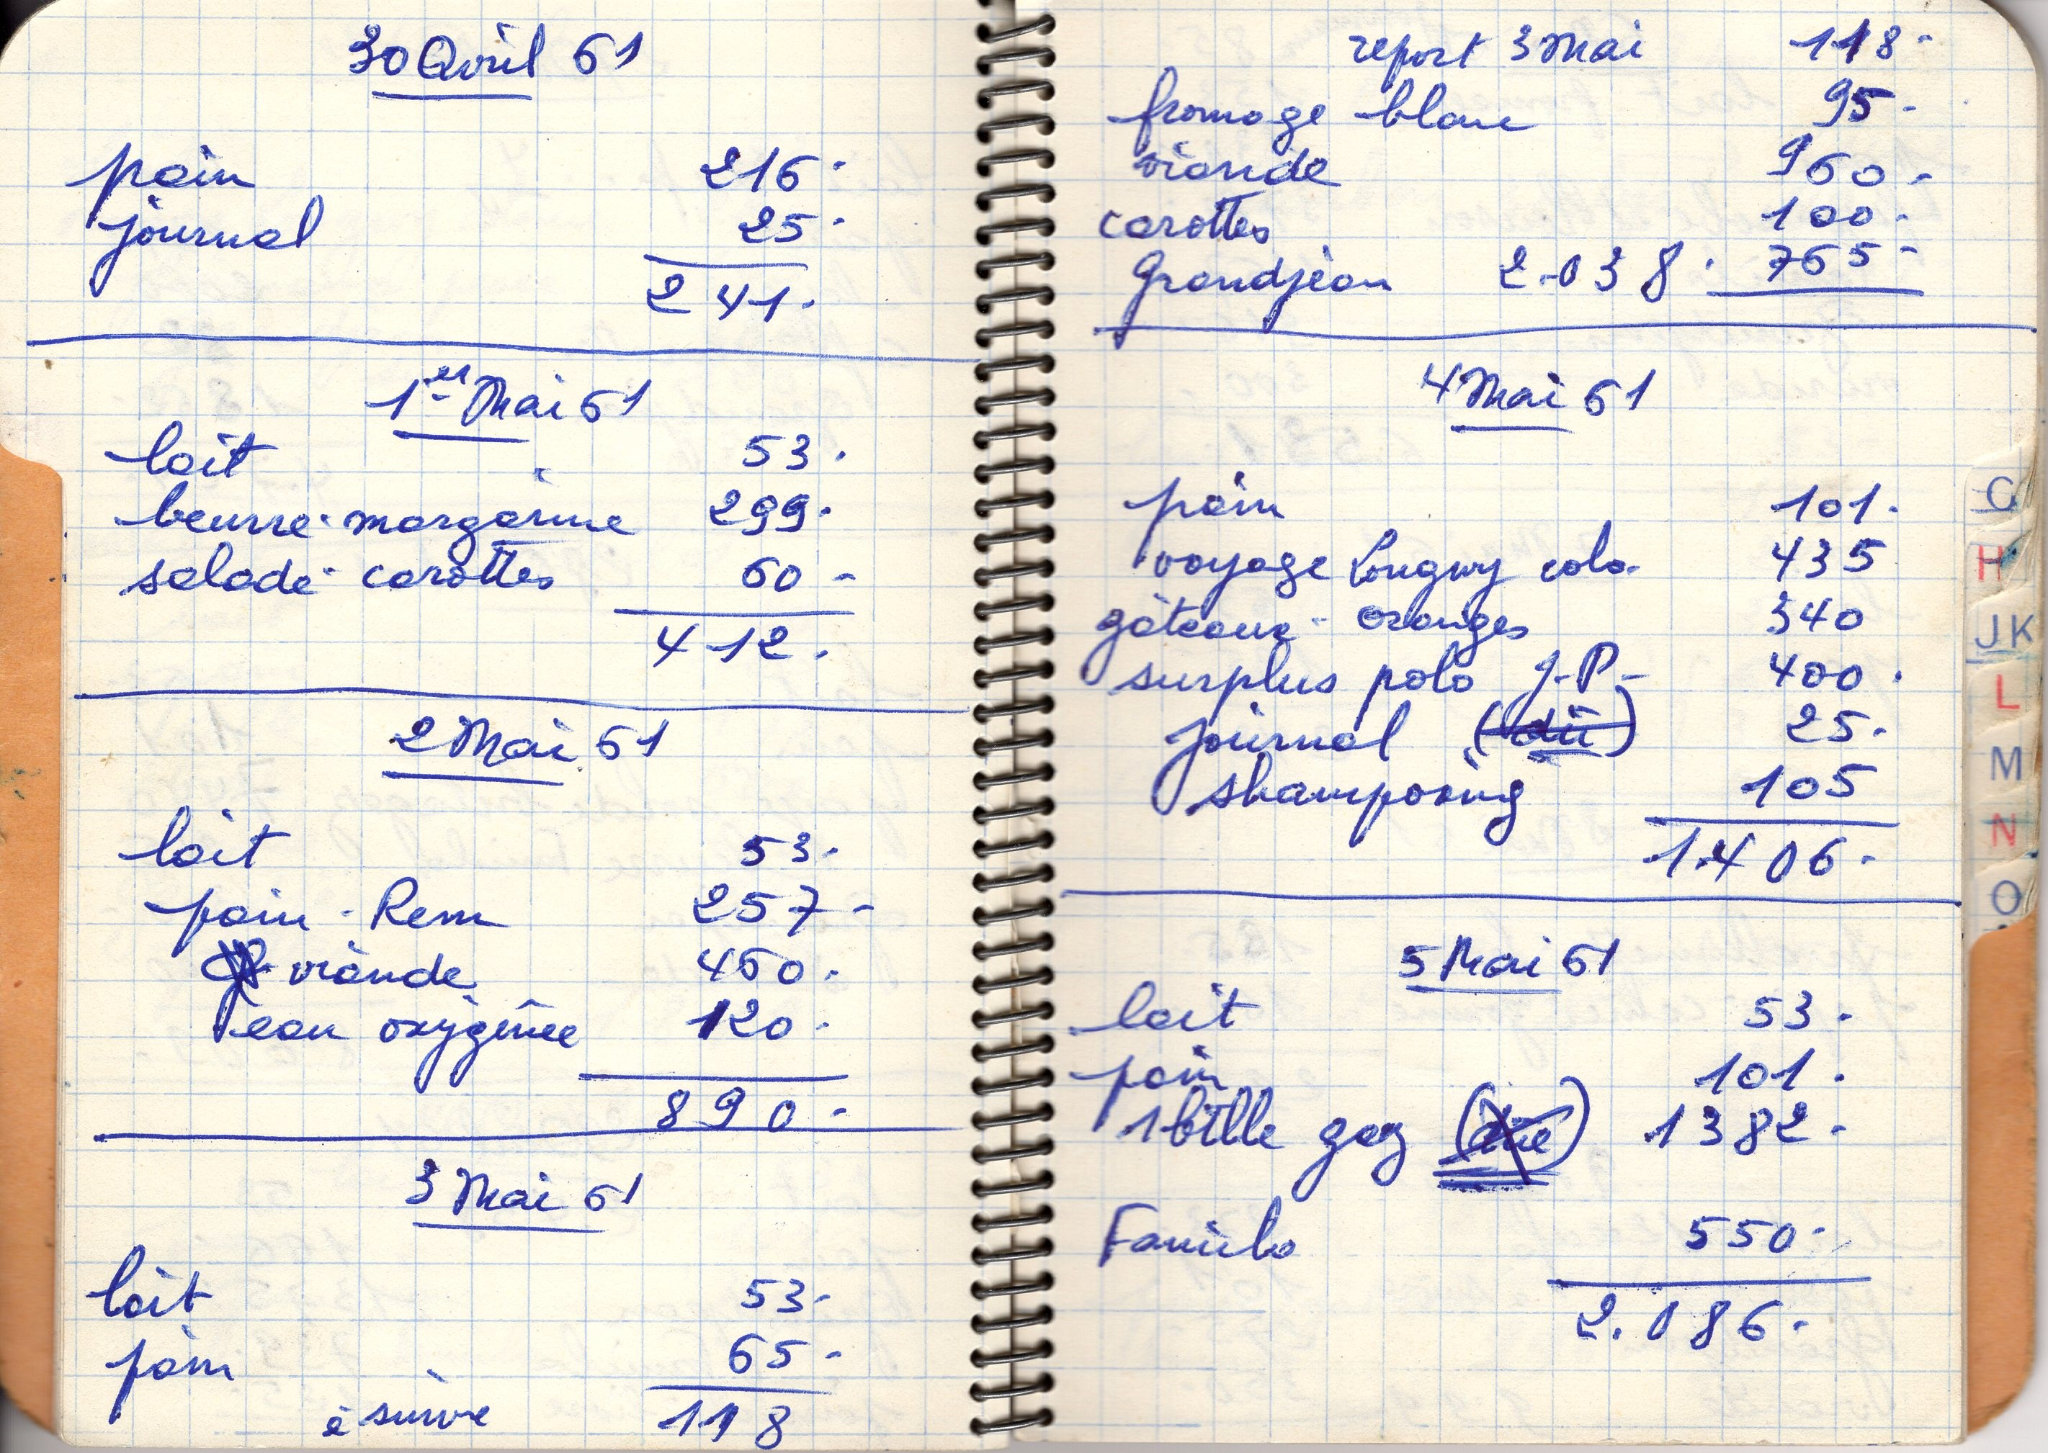 30 Avril 61
pain 216.
journal 25.
241.
1er Mai 61
lait 53.
beurre - margarine 299.
salade - carottes 60 -
412.
2 Mai 61
lait 53.
pain - Rem 257 -
viande 460.
eau oxygénée 120.
890 -
3 Mai 61
lait 53.
pain 65 -
à suivre 118
report 3 Mai 118 -
fromage blanc 95 -
viande 960 -
carottes 100 -
Grandjean 2.038. 765 -
4 Mai 61
pain 101.
voyage Longwy colo. 435
gâteaux - oranges 340
surplus polo J.P. 400.
journal (dû) 25.
shampoing 105
1.406.
5 Mai 61
lait 53.
pain 101.
1 btlle gaz (due) 1382.
Famila 550.
2.086.
C
H
JK
L
M
N
O